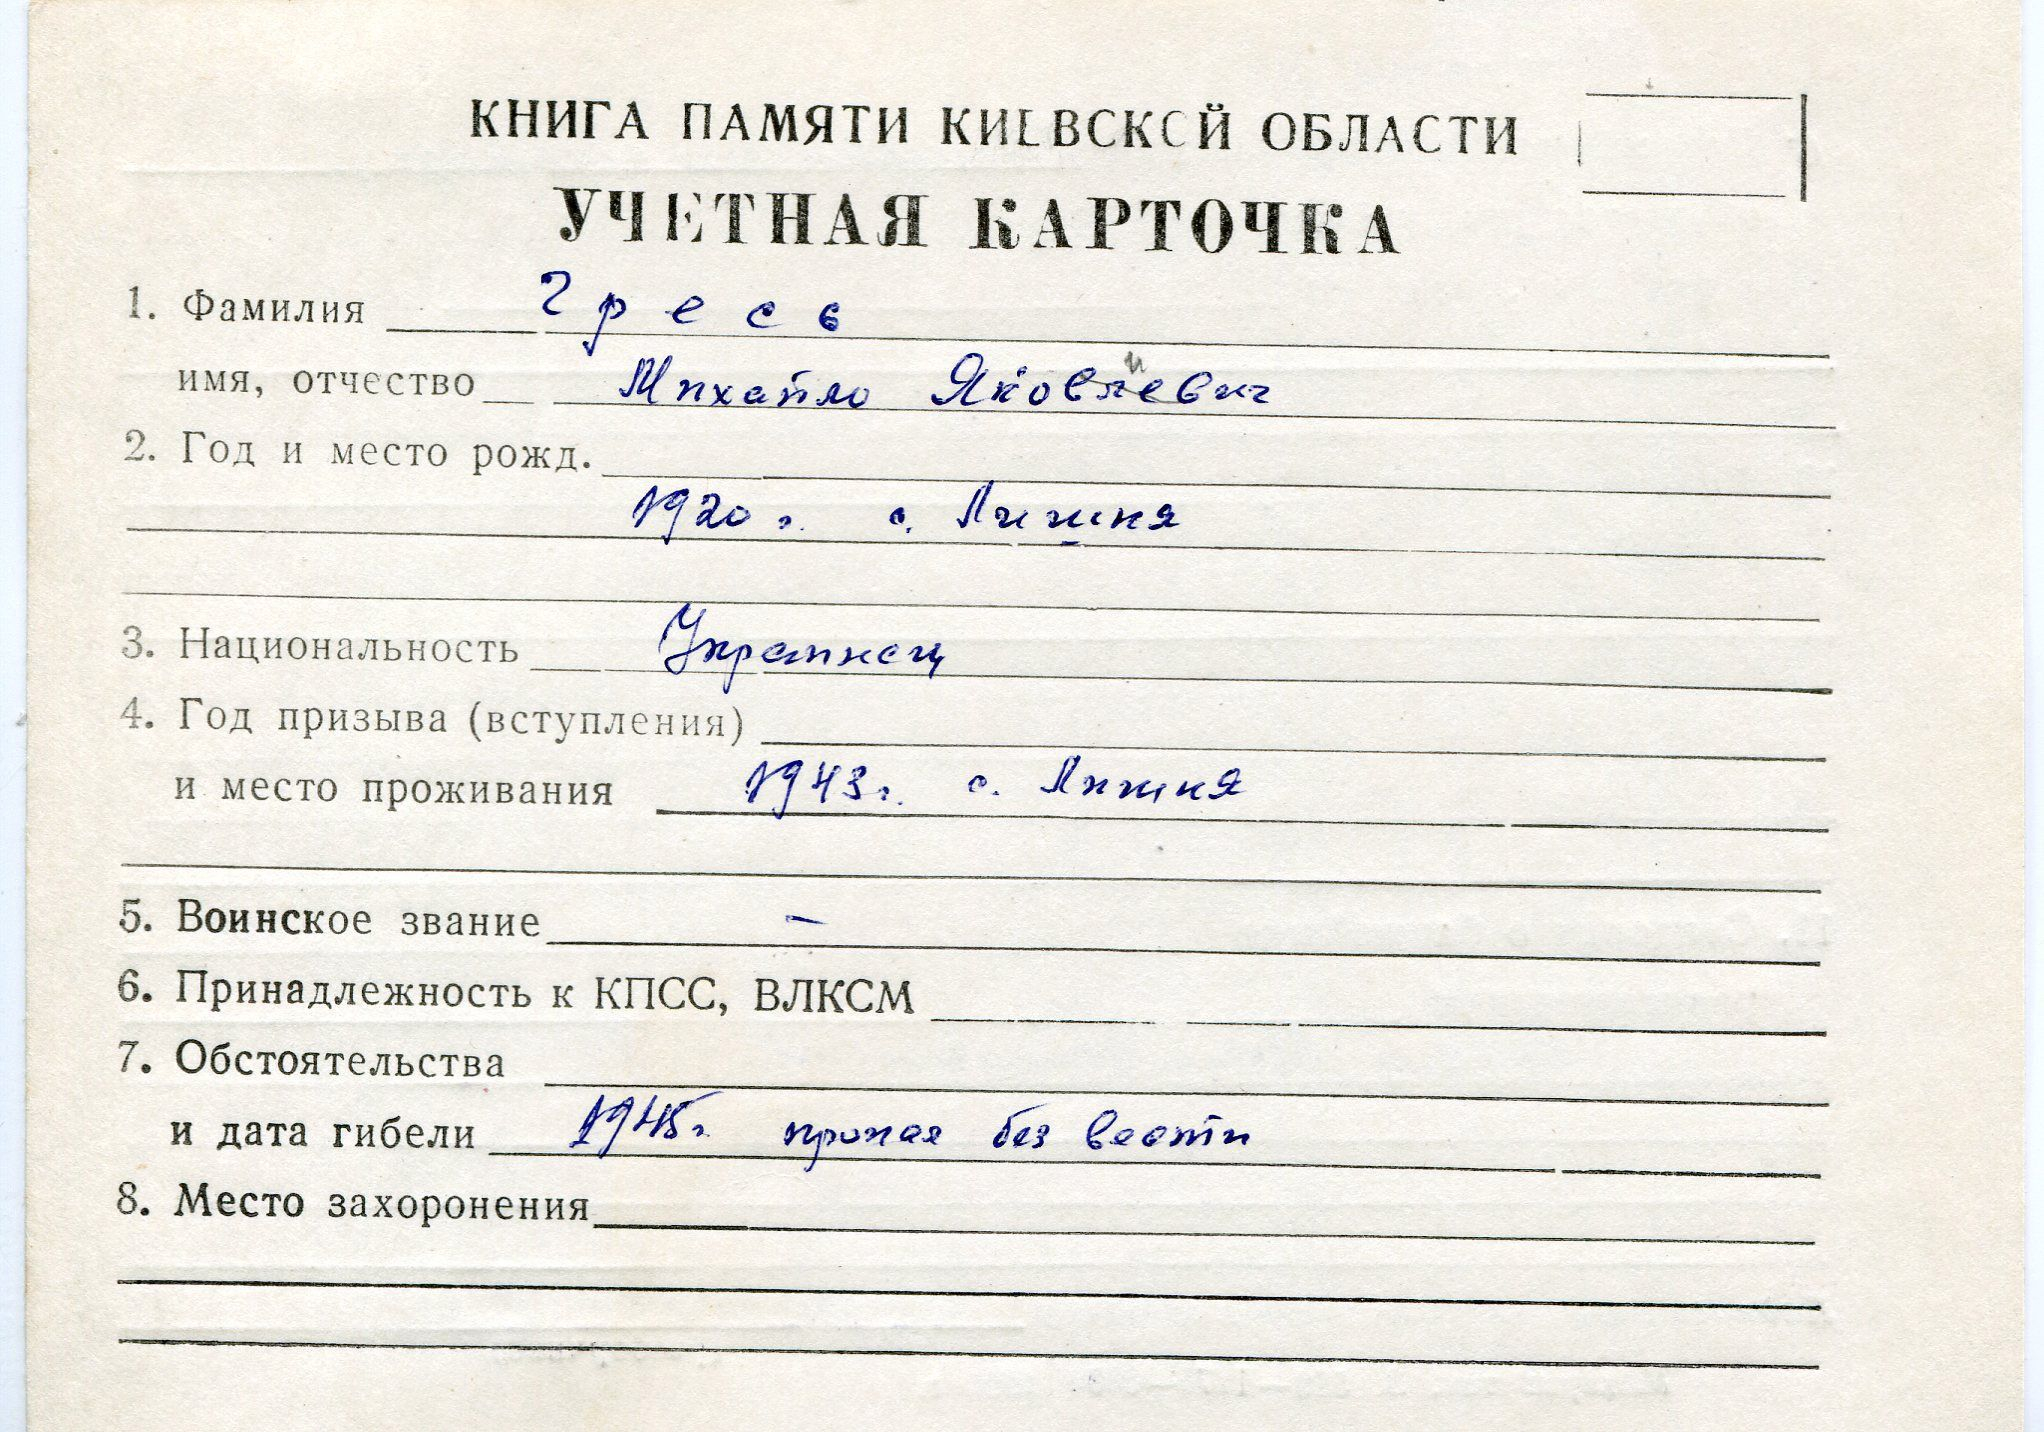 КНИГА ПАМЯТИ КИЕВСКОЙ ОБЛАСТИ
УЧЕТНАЯ КАРТОЧКА
1. Фамилия Гресь
имя, отчество Михайло Яковлевич
2. Год и место рожд.
1920 г. с. Лишня
3. Национальность Украинец
4. Год призыва (вступления)
и место проживания 1943 г. с. Лишня
5. Воинское звание –
6. Принадлежность к КПСС, ВЛКСМ
7. Обстоятельства
и дата гибели 1945 г. пропал без вести
8. Место захоронения